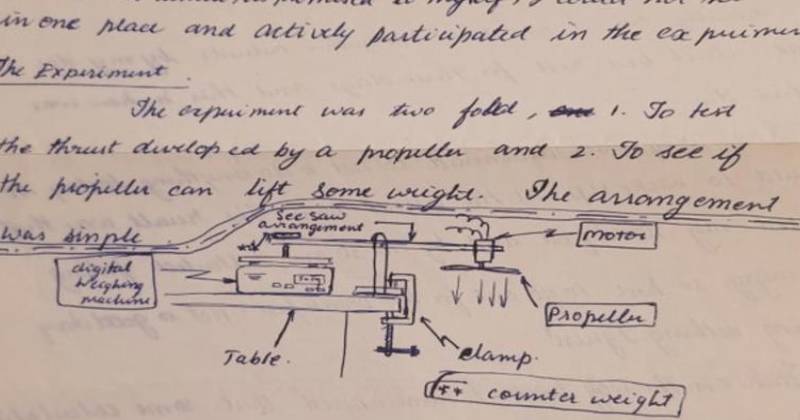 in one place and actively participated in the experimen
The Experiment.
The experiment was two fold, one 1. To test
the thrust developed by a propeller and 2. To see if
the propeller can lift some weight. The arrangement
was simple
See saw
arrangement
motor
**
digital
weighing
machine
Propeller
Table.
clamp.
** counter weight